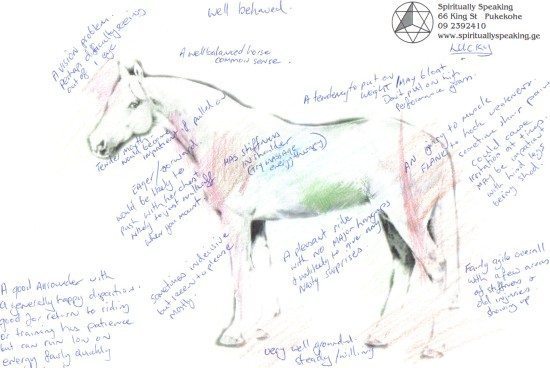 well behaved.
Spiritually Speaking
66 King St Pukekohe
09 2392410
www.spirituallyspeaking.ge
LUCKY
A vision problem.
perhaps difficulty seeing
out of 1 eye
A well balanced horse
common sense.
A tendency to put on
weight / May bloat
Don't pull on with
performance grain.
Tender mouth
would become
impatient if pulled on
Eager / forward
would be likely to
push with her chest
likely to just walk off
when you mount
Has stiffness
in shoulder
(Try massage
every
AN injury to muscle
FLANK to hock weakness.
continue their pain
could cause
irritation at times
May be unsettled
with hind legs
being shod
sometimes
but keen to please
mostly
A pleasant ride
with no major hangups
& unlikely to give any
nasty surprises.
Fairly agile overall
with a few areas
of stiffness &
old injuries
showing up
A good Allrounder with
a generally happy disposition.
good for return to riding
or training has patience
but can run low on
energy fairly quickly
very well grounded
steady / willing